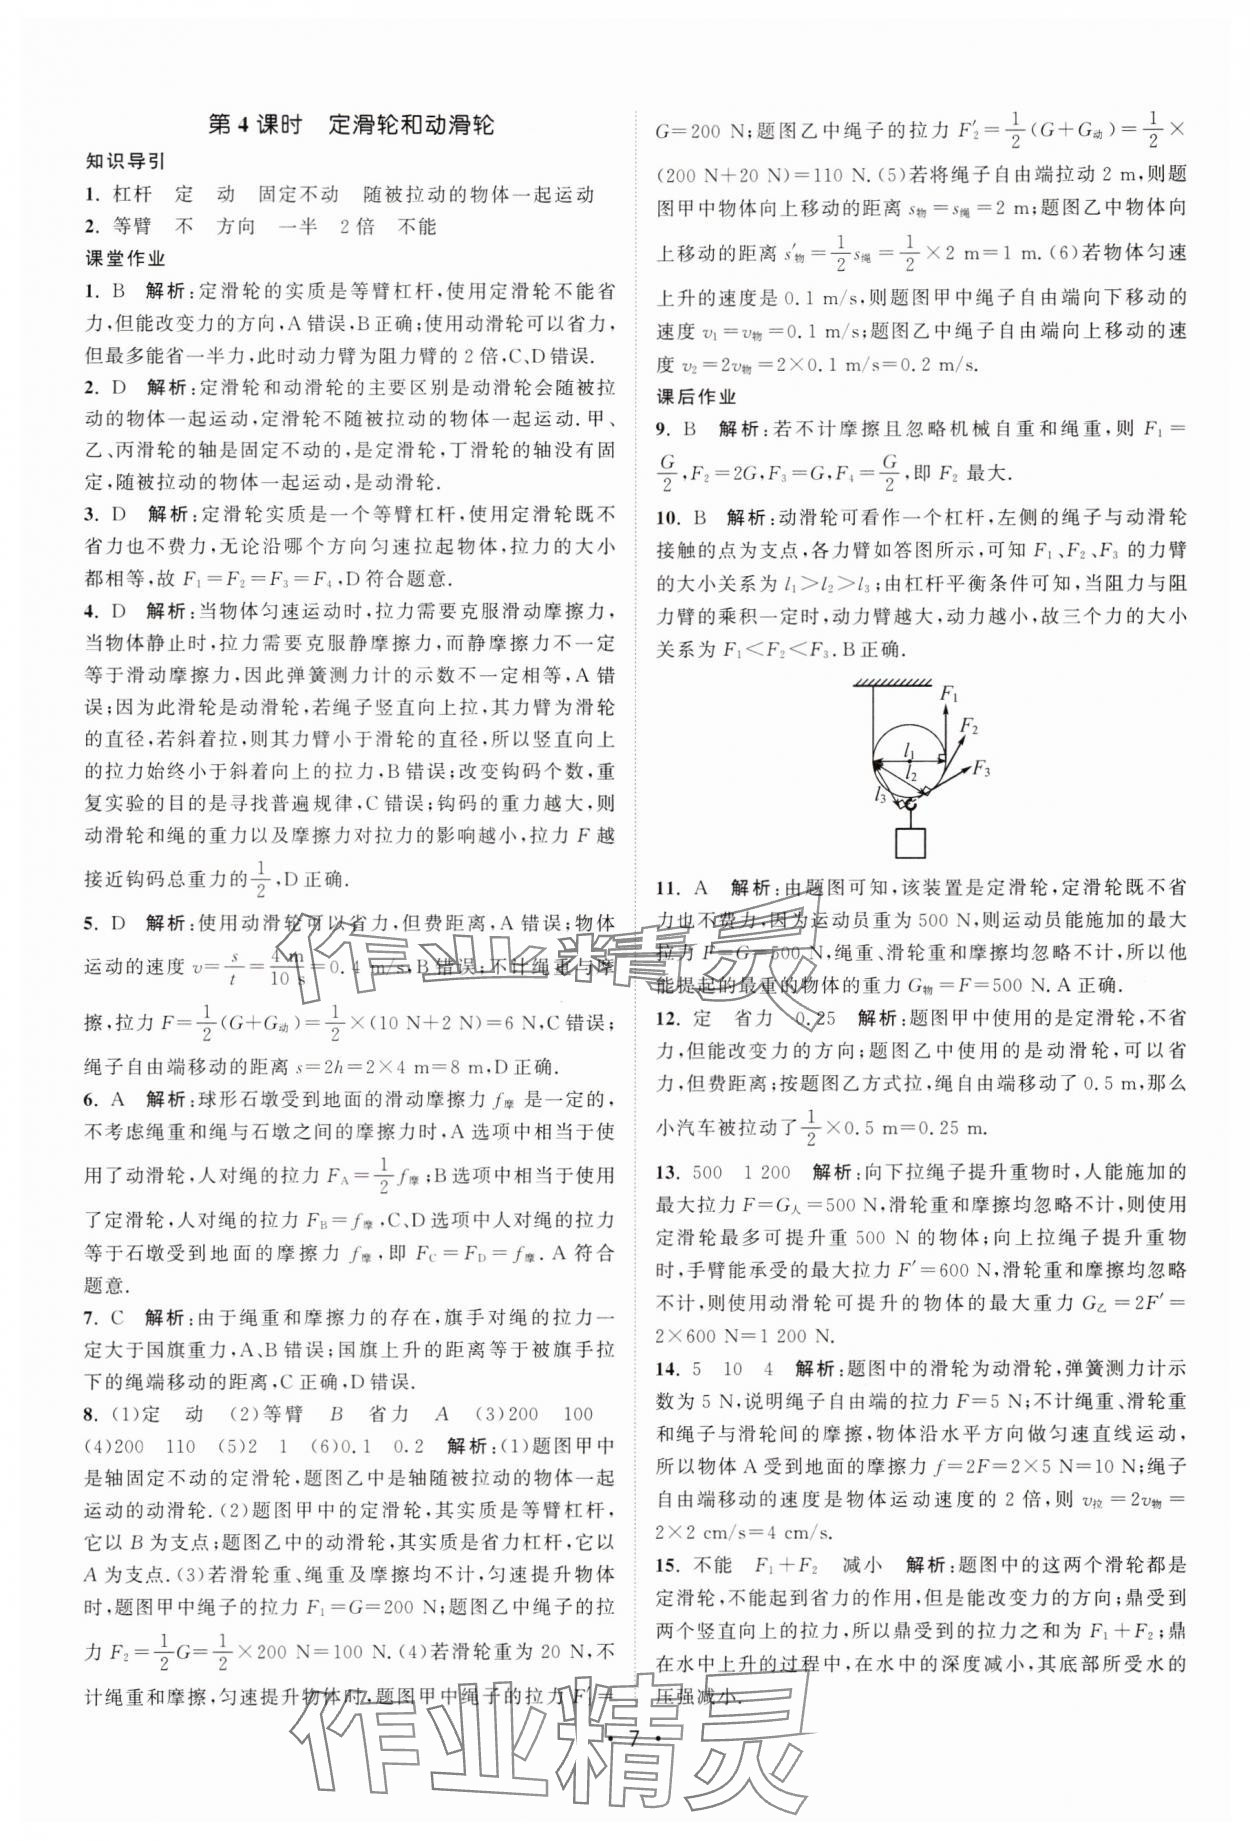 第 4 课时　定滑轮和动滑轮
知识导引
1. 杠杆　定　动　固定不动　随被拉动的物体一起运动
2. 等臂　不　方向　一半　2倍　不能
课堂作业
1. B　解析:定滑轮的实质是等臂杠杆,使用定滑轮不能省
力,但能改变力的方向,A错误,B正确;使用动滑轮可以省力,
但最多能省一半力,此时动力臂为阻力臂的2倍,C、D错误.
2. D　解析:定滑轮和动滑轮的主要区别是动滑轮会随被拉
动的物体一起运动,定滑轮不随被拉动的物体一起运动.甲、
乙、丙滑轮的轴是固定不动的,是定滑轮,丁滑轮的轴没有固
定,随被拉动的物体一起运动,是动滑轮.
3. D　解析:定滑轮实质是一个等臂杠杆,使用定滑轮既不
省力也不费力,无论沿哪个方向匀速拉起物体,拉力的大小
都相等,故 F₁=F₂=F₃=F₄,D符合题意.
4. D　解析:当物体匀速运动时,拉力需要克服滑动摩擦力,
当物体静止时,拉力需要克服静摩擦力,而静摩擦力不一定
等于滑动摩擦力,因此弹簧测力计的示数不一定相等,A错
误;因为此滑轮是动滑轮,若绳子竖直向上拉,其力臂为滑轮
的直径,若斜着拉,则其力臂小于滑轮的直径,所以竖直向上
的拉力始终小于斜着向上的拉力,B错误;改变钩码个数,重
复实验的目的是寻找普遍规律,C错误;钩码的重力越大,则
动滑轮和绳的重力以及摩擦力对拉力的影响越小,拉力 F 越
接近钩码总重力的1/2,D正确.
5. D　解析:使用动滑轮可以省力,但费距离,A错误;物体
运动的速度 v=s/t=4 m/10 s=0.4 m/s,B错误;不计绳重与摩
擦,拉力 F=1/2(G+G动)=1/2×(10 N+2 N)=6 N,C错误;
绳子自由端移动的距离 s=2h=2×4 m=8 m,D正确.
6. A　解析:球形石墩受到地面的滑动摩擦力 f摩 是一定的,
不考虑绳重和绳与石墩之间的摩擦力时,A选项中相当于使
用了动滑轮,人对绳的拉力 FA=1/2 f摩;B选项中相当于使用
了定滑轮,人对绳的拉力 FB=f摩,C、D选项中人对绳的拉力
等于石墩受到地面的摩擦力 f摩,即 FC=FD=f摩.A符合
题意.
7. C　解析:由于绳重和摩擦力的存在,旗手对绳的拉力一
定大于国旗重力,A、B错误;国旗上升的距离等于被旗手拉
下的绳端移动的距离,C正确,D错误.
8. (1)定　动　(2)等臂　B　省力　A　(3)200　100
(4)200　110　(5)2　1　(6)0.1　0.2　解析:(1)题图甲中
是轴固定不动的定滑轮,题图乙中是轴随被拉动的物体一起
运动的动滑轮.(2)题图甲中的定滑轮,其实质是等臂杠杆,
它以 B 为支点;题图乙中的动滑轮,其实质是省力杠杆,它以
A 为支点.(3)若滑轮重、绳重及摩擦均不计,匀速提升物体
时,题图甲中绳子的拉力 F₁=G=200 N;题图乙中绳子的拉
力 F₂=1/2G=1/2×200 N=100 N.(4)若滑轮重为 20 N,不
计绳重和摩擦,匀速提升物体时,题图甲中绳子的拉力 F′=
G=200 N;题图乙中绳子的拉力 F′₂=1/2(G+G动)=1/2×
(200 N+20 N)=110 N.(5)若将绳子自由端拉动 2 m,则题
图甲中物体向上移动的距离 s物=s绳=2 m;题图乙中物体向
上移动的距离 s′物=1/2 s绳=1/2×2 m=1 m.(6)若物体匀速
上升的速度是 0.1 m/s,则题图甲中绳子自由端向下移动的
速度 v₁=v物=0.1 m/s;题图乙中绳子自由端向上移动的速
度 v₂=2v物=2×0.1 m/s=0.2 m/s.
课后作业
9. B　解析:若不计摩擦且忽略机械自重和绳重,则 F₁=
G/2,F₂=2G,F₃=G,F₄=G/2,即 F₂ 最大.
10. B　解析:动滑轮可看作一个杠杆,左侧的绳子与动滑轮
接触的点为支点,各力臂如答图所示,可知 F₁、F₂、F₃ 的力臂
的大小关系为 l₁>l₂>l₃;由杠杆平衡条件可知,当阻力与阻
力臂的乘积一定时,动力臂越大,动力越小,故三个力的大小
关系为 F₁<F₂<F₃.B正确.
F₁
F₂
F₃
l₁
l₂
l₃
11. A　解析:由题图可知,该装置是定滑轮,定滑轮既不省
力也不费力,因为运动员重为 500 N,则运动员能施加的最大
拉力 F=G=500 N,绳重、滑轮重和摩擦均忽略不计,所以他
能提起的最重的物体的重力 G物=F=500 N.A正确.
12. 定　省力　0.25　解析:题图甲中使用的是定滑轮,不省
力,但能改变力的方向;题图乙中使用的是动滑轮,可以省
力,但费距离;按题图乙方式拉,绳自由端移动了 0.5 m,那么
小汽车被拉动了1/2×0.5 m=0.25 m.
13. 500　1 200　解析:向下拉绳子提升重物时,人能施加的
最大拉力 F=G人=500 N,滑轮重和摩擦均忽略不计,则使用
定滑轮最多可提升重 500 N 的物体;向上拉绳子提升重物
时,手臂能承受的最大拉力 F′=600 N,滑轮重和摩擦均忽略
不计,则使用动滑轮可提升的物体的最大重力 G乙=2F′=
2×600 N=1 200 N.
14. 5　10　4　解析:题图中的滑轮为动滑轮,弹簧测力计示
数为 5 N,说明绳子自由端的拉力 F=5 N;不计绳重、滑轮重
和绳子与滑轮间的摩擦,物体沿水平方向做匀速直线运动,
所以物体 A 受到地面的摩擦力 f=2F=2×5 N=10 N;绳子
自由端移动的速度是物体运动速度的 2 倍,则 v拉=2v物=
2×2 cm/s=4 cm/s.
15. 不能　F₁+F₂　减小　解析:题图中的这两个滑轮都是
定滑轮,不能起到省力的作用,但是能改变力的方向;鼎受到
两个竖直向上的拉力,所以鼎受到的拉力之和为 F₁+F₂;鼎
在水中上升的过程中,在水中的深度减小,其底部所受水的
压强减小.
· 7 ·
作业精灵
作业精灵